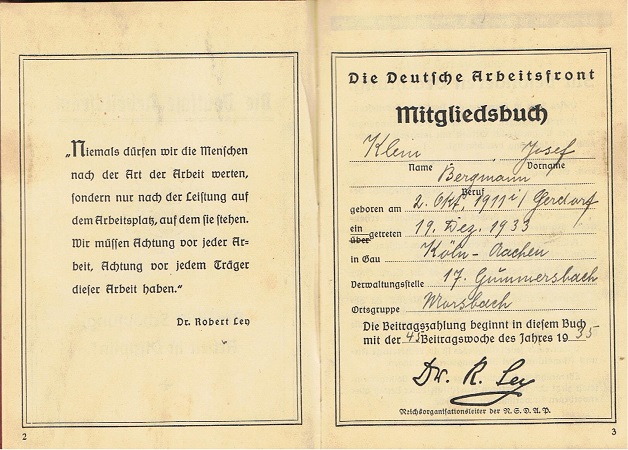 „Niemals dürfen wir die Menschen
nach der Art der Arbeit werten,
sondern nur nach der Leistung auf
dem Arbeitsplatz, auf dem sie stehen.
Wir müssen Achtung vor jeder Ar-
beit, Achtung vor jedem Träger
dieser Arbeit haben.“
Dr. Robert Ley
2
Die Deutsche Arbeitsfront
Mitgliedsbuch
Klein Josef
Name Vorname
Bergmann
Beruf
geboren am 2. Okt. 1911 i/ Gerdorf
ein
über getreten 19. Dez. 1933
in Gau Köln-Aachen
Verwaltungsstelle 17. Gummersbach
Ortsgruppe Morsbach
Die Beitragszahlung beginnt in diesem Buch
mit der Beitragswoche des Jahres 1935
Dr. R. Ley
Reichsorganisationsleiter der N.S.D.A.P.
3